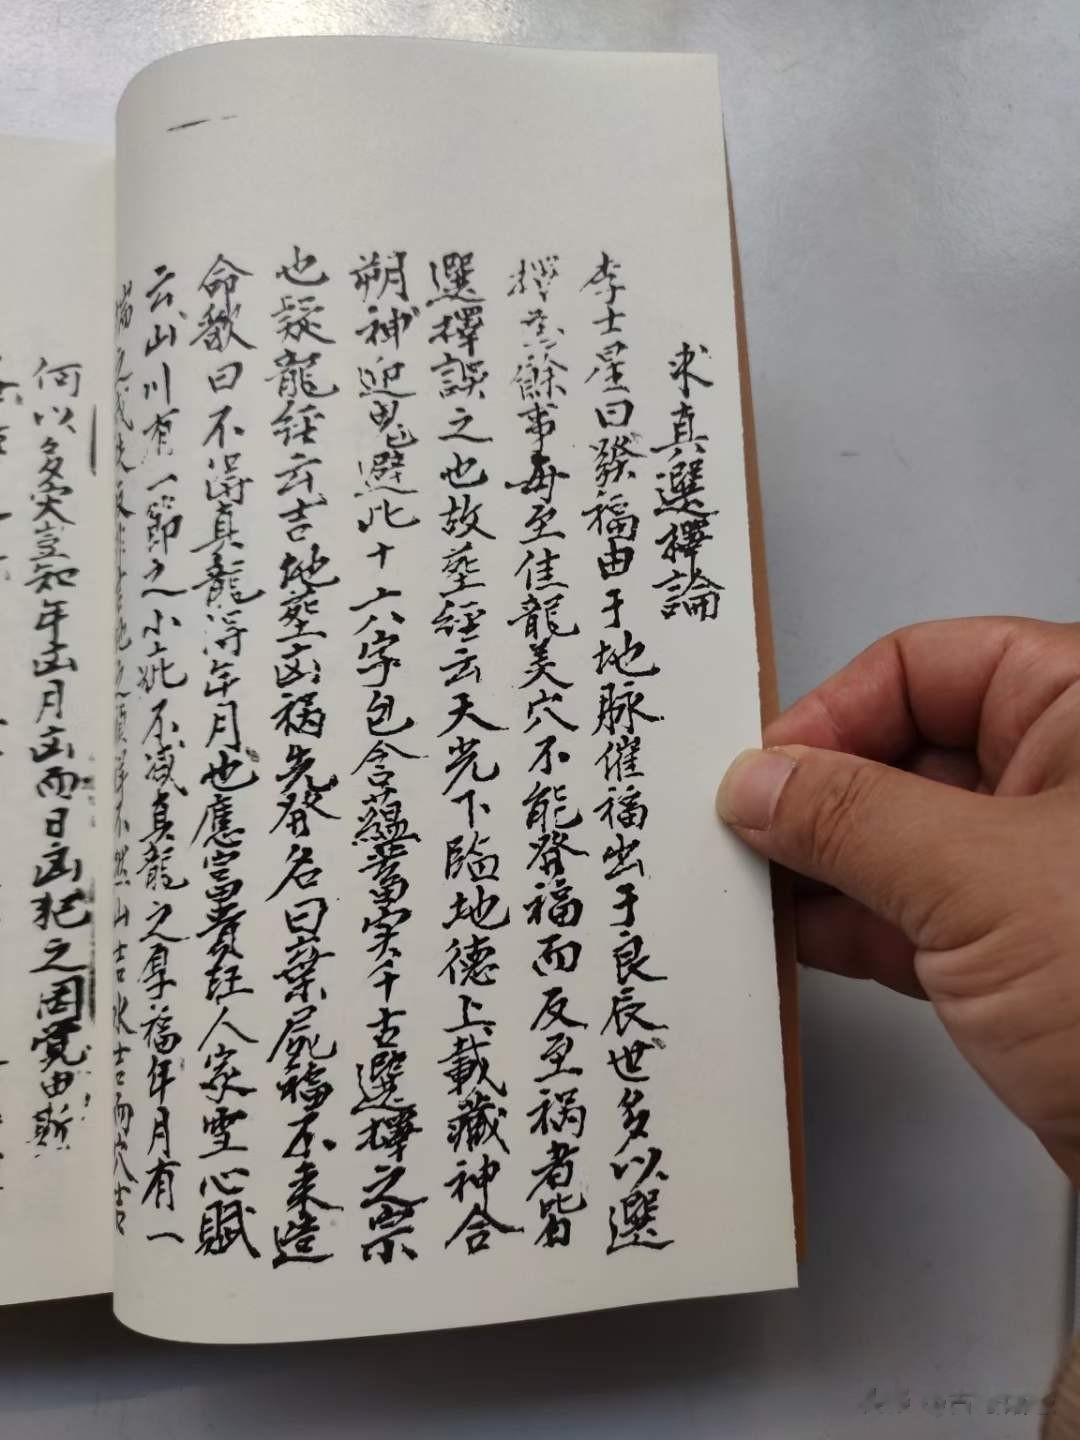 求真選擇論
李士星曰發福由于地脉催福出于良辰世多以選
擇為餘事每至佳龍美穴不能發福而反至禍者皆
選擇誤之也故塟經云天光下臨地德上載藏神合
朔神迎鬼避此十六字包含蘊蓄实千古選擇之宗
也疑龍経云吉地塟凶禍先發名曰棄屍福不来造
命歌曰不得真龍得年月也應富貴旺人家雪心賦
云山川有一節之小疵不减真龍之厚福年月有一
何以多灾豈知年凶月凶而日凶犯之罔覚由斯